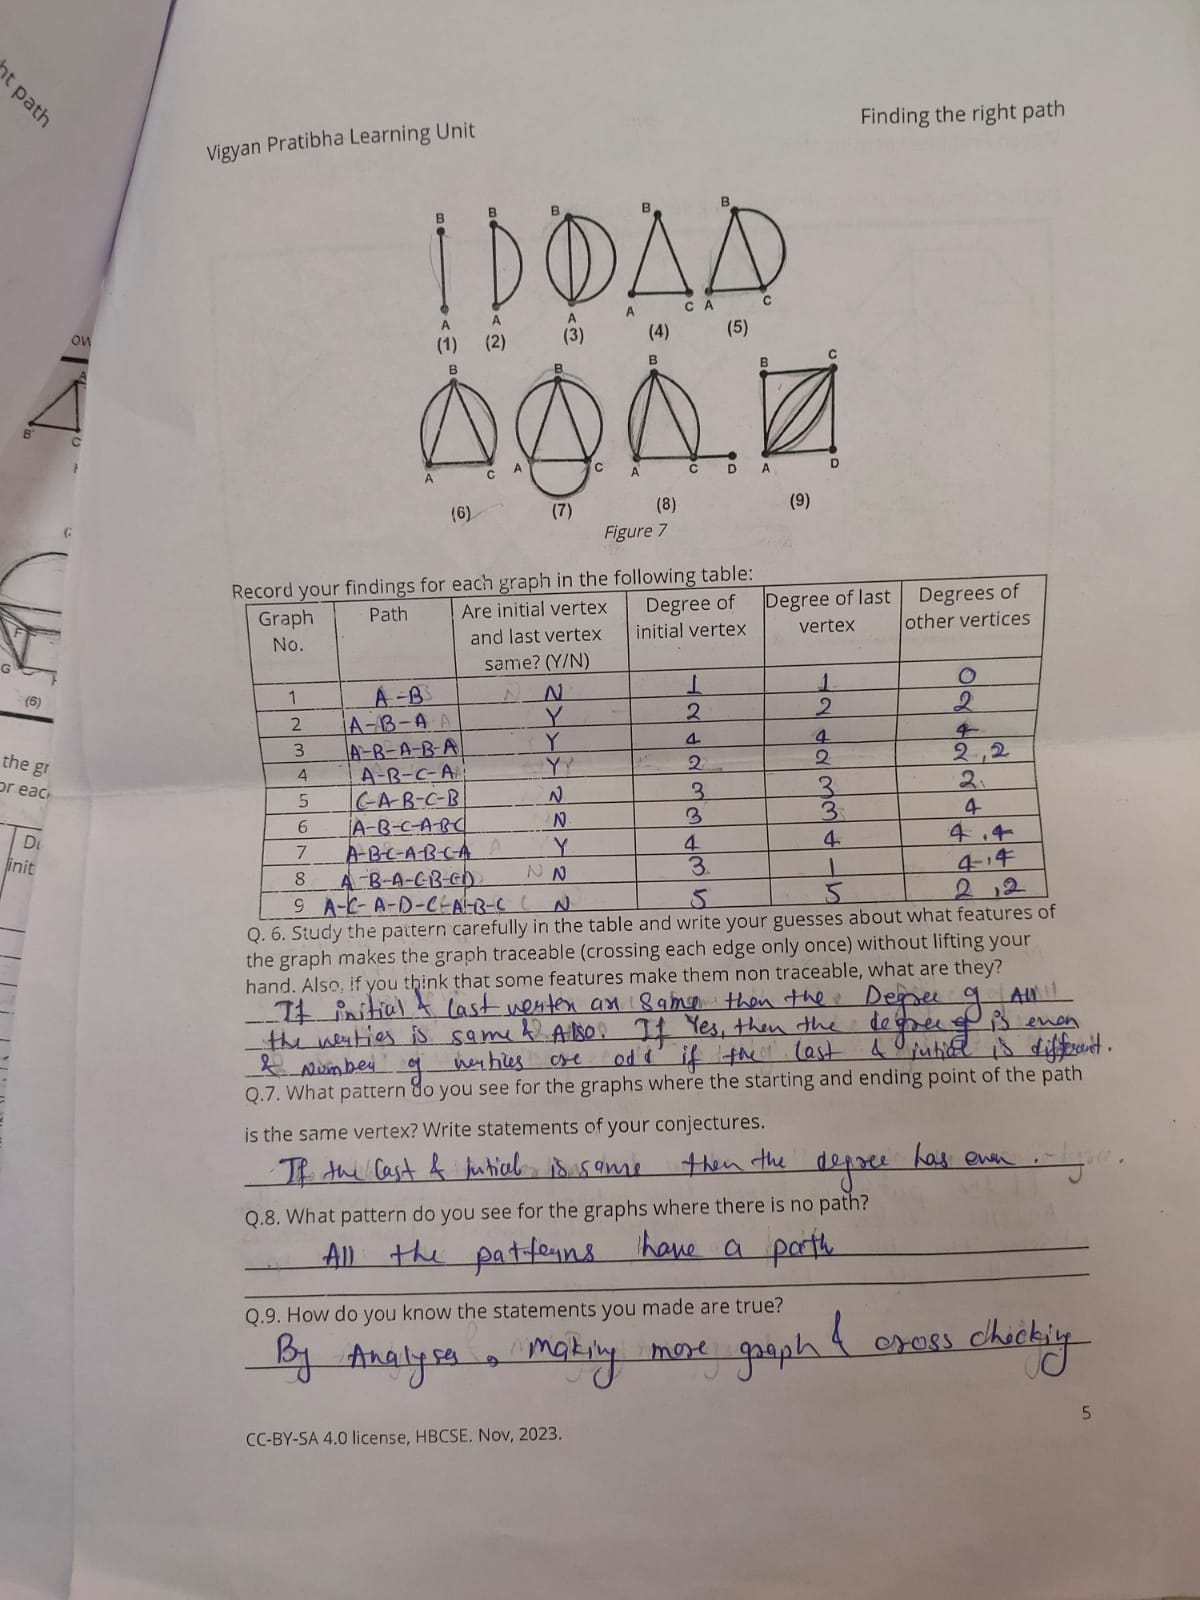 ht path
Vigyan Pratibha Learning Unit
Finding the right path
B B B B B
A A A A C A C
(1) (2) (3) (4) (5)
B B B B C
A C A C A C D A D
(6) (7) (8) (9)
Figure 7
Record your findings for each graph in the following table:
Graph No. Path Are initial vertex and last vertex same? (Y/N) Degree of initial vertex Degree of last vertex Degrees of other vertices
1 A-B N 1 1 0
2 A-B-A Y 2 2 2
3 A-B-A-B-A Y 4 4 4
4 A-B-C-A Y 2 2 2,2
5 C-A-B-C-B N 3 3 2
6 A-B-C-A-BC N 3 3 4
7 A-B-C-A-B-C-A Y 4 4 4,4
8 A-B-A-CB-CD N 3 1 4,4
9 A-C-A-D-C-A-B-C N 5 5 2,2
Q. 6. Study the pattern carefully in the table and write your guesses about what features of
the graph makes the graph traceable (crossing each edge only once) without lifting your
hand. Also, if you think that some features make them non traceable, what are they?
If initial & last vertex are same then the Degree of All
the verties is same & Also. If Yes, then the degree of is even
& Number of verties are odd if the last & initial is different.
Q.7. What pattern do you see for the graphs where the starting and ending point of the path
is the same vertex? Write statements of your conjectures.
If the last & intial is same then the degree has even.
Q.8. What pattern do you see for the graphs where there is no path?
All the patterns have a path
Q.9. How do you know the statements you made are true?
By Analyses, making more graph & cross checking
CC-BY-SA 4.0 license, HBCSE. Nov, 2023.
5
ow
A
B C
F
G
(6)
the gr
or each
init